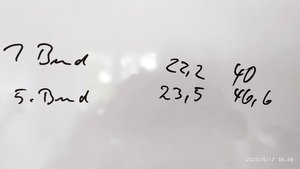 1 Bund 22,2 40
5. Bund 23,5 46,6
2020/9/17 16:49